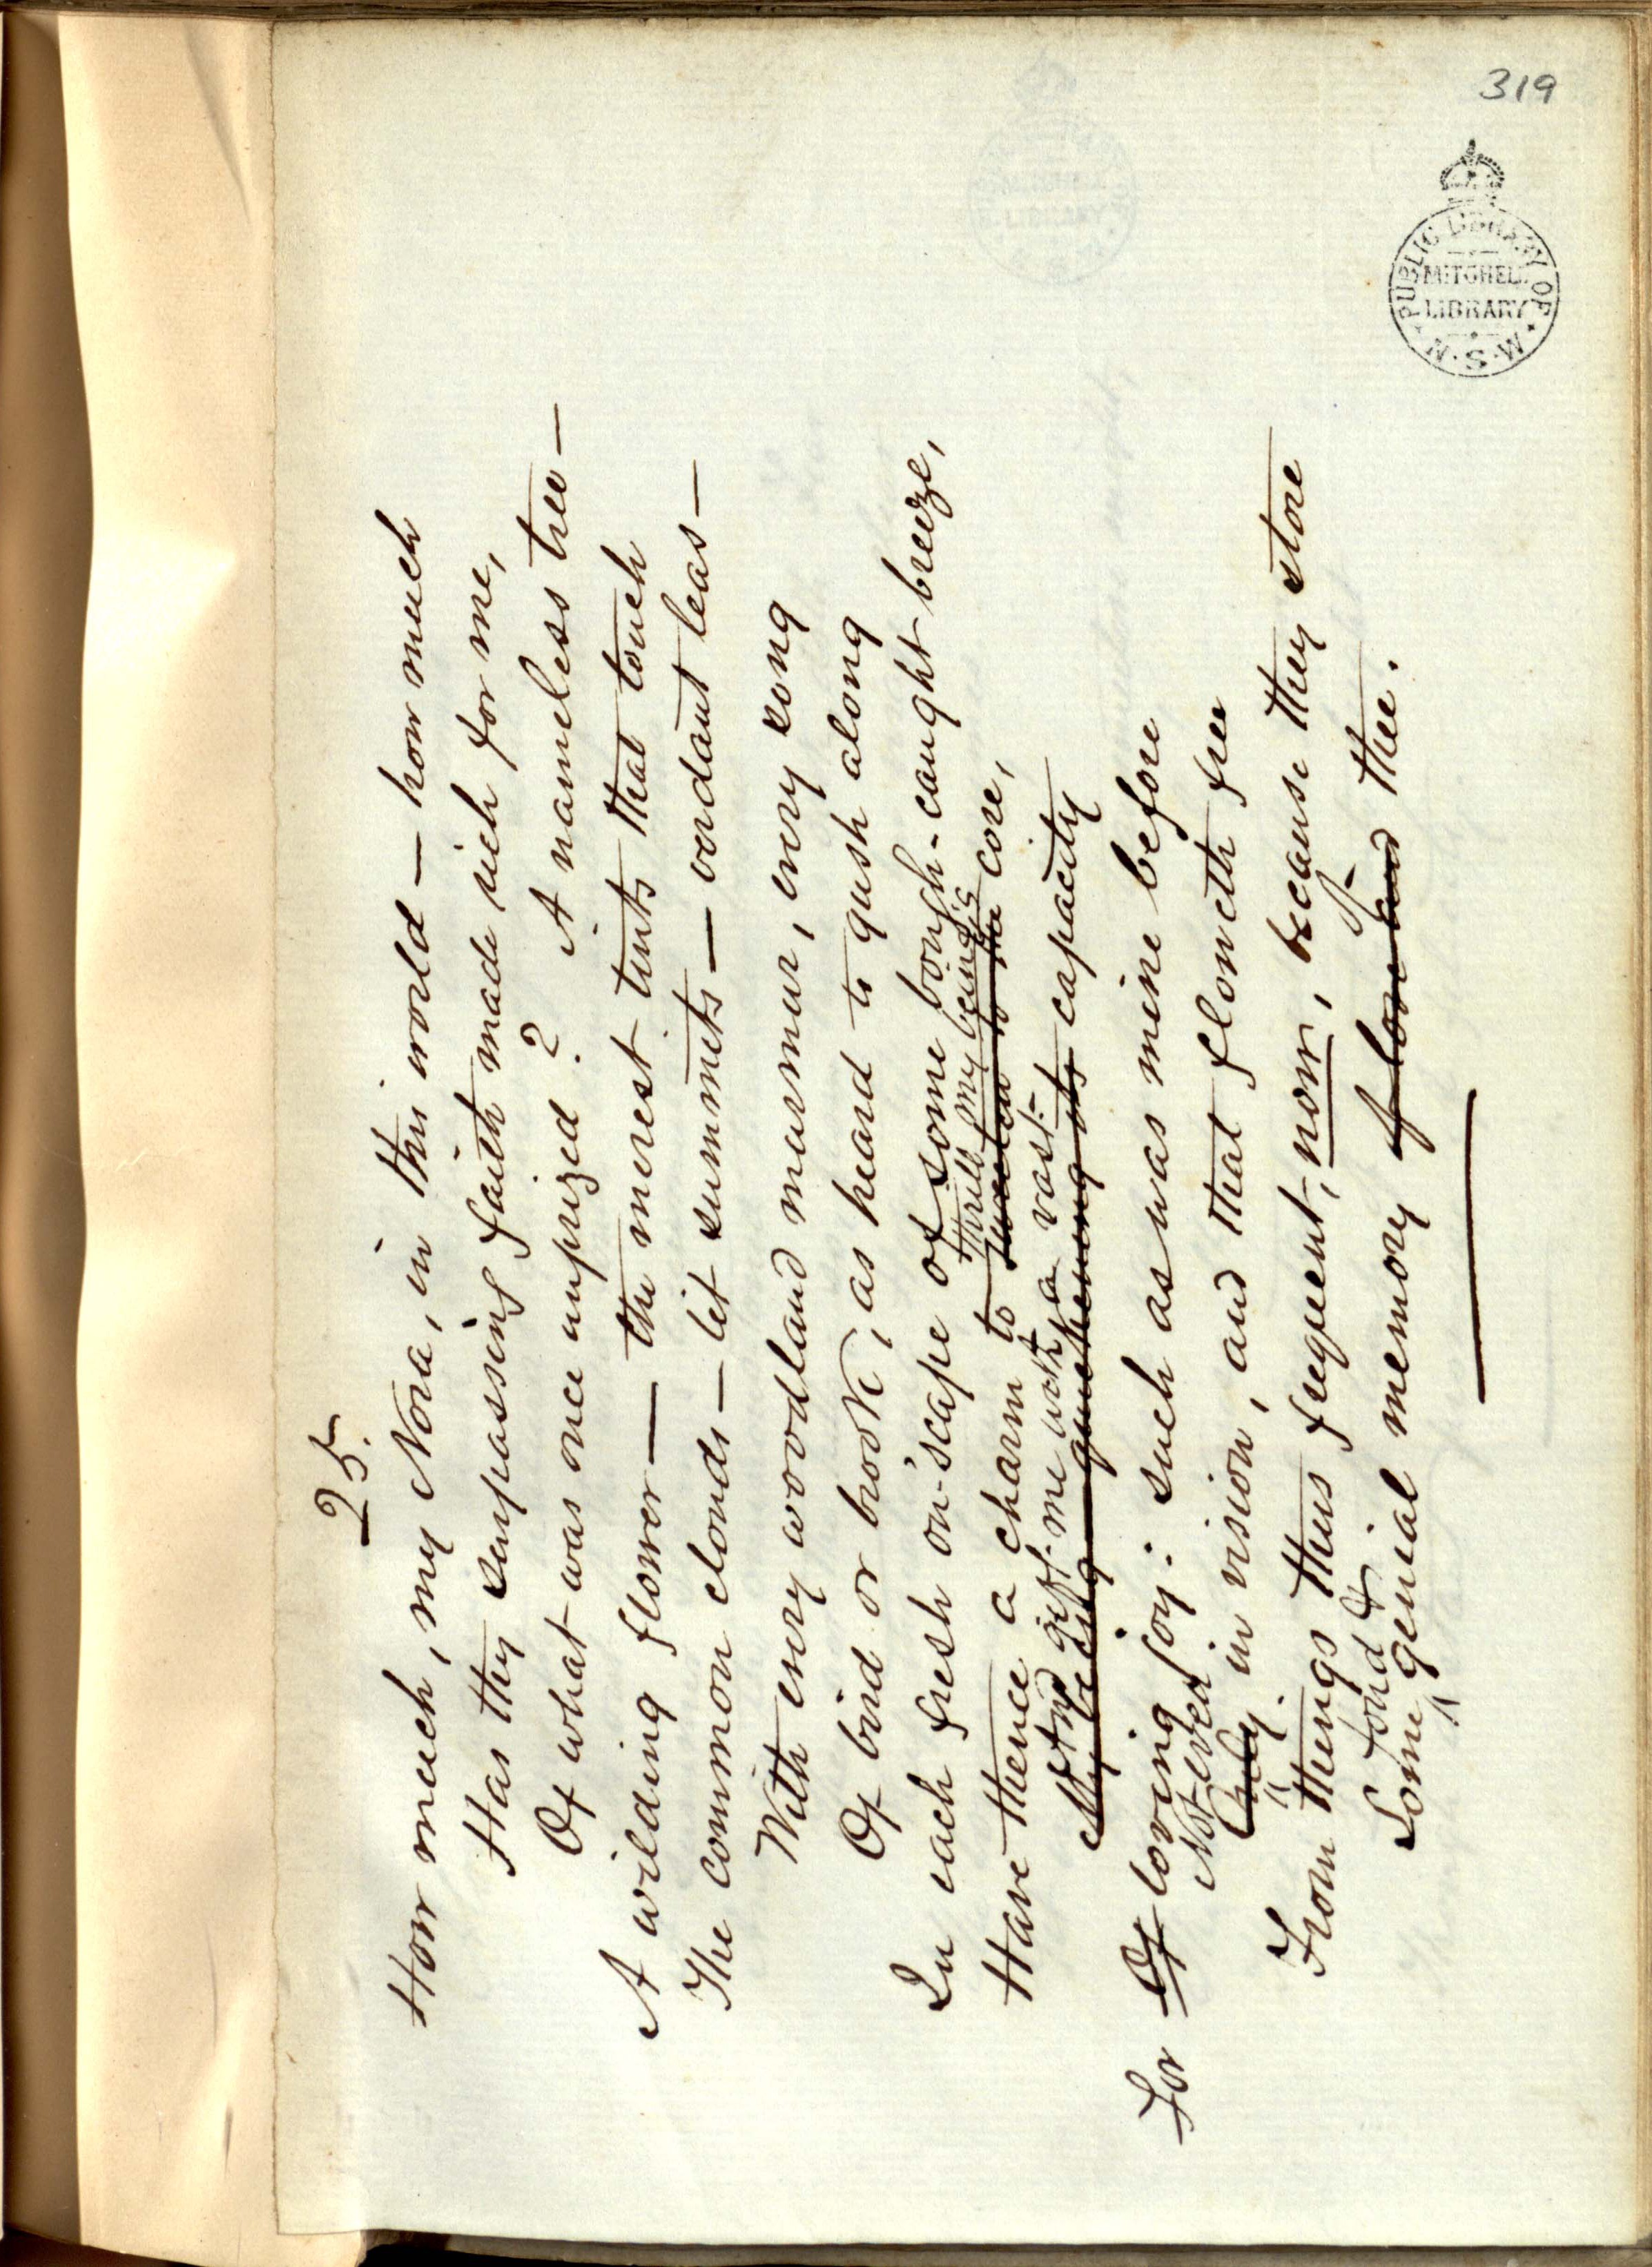 319
PUBLIC LIBRARY OF N.S.W.
MITCHELL
LIBRARY
25.
How much, my Nora, in this world — how much
Has thy surpassing faith made rich for me,
Of what was once unprized? A nameless tree —
A wilding flower — the merest tints that touch
The common clouds — lit summits — verdant leas —
With every woodland murmur, every song
Of bird or brook, as heard to gush along
In each fresh on-'scape of some bough-caught breeze,
thrill my being's
Have thence a charm to sweeten to the core,
And gift me with a vast
My being quickening its capacity
For Of loving joy: such as was mine before
Not even
Only in vision, and that floweth free
From things thus frequent, now, because they store
fond &
Some genial memory of love and thee.